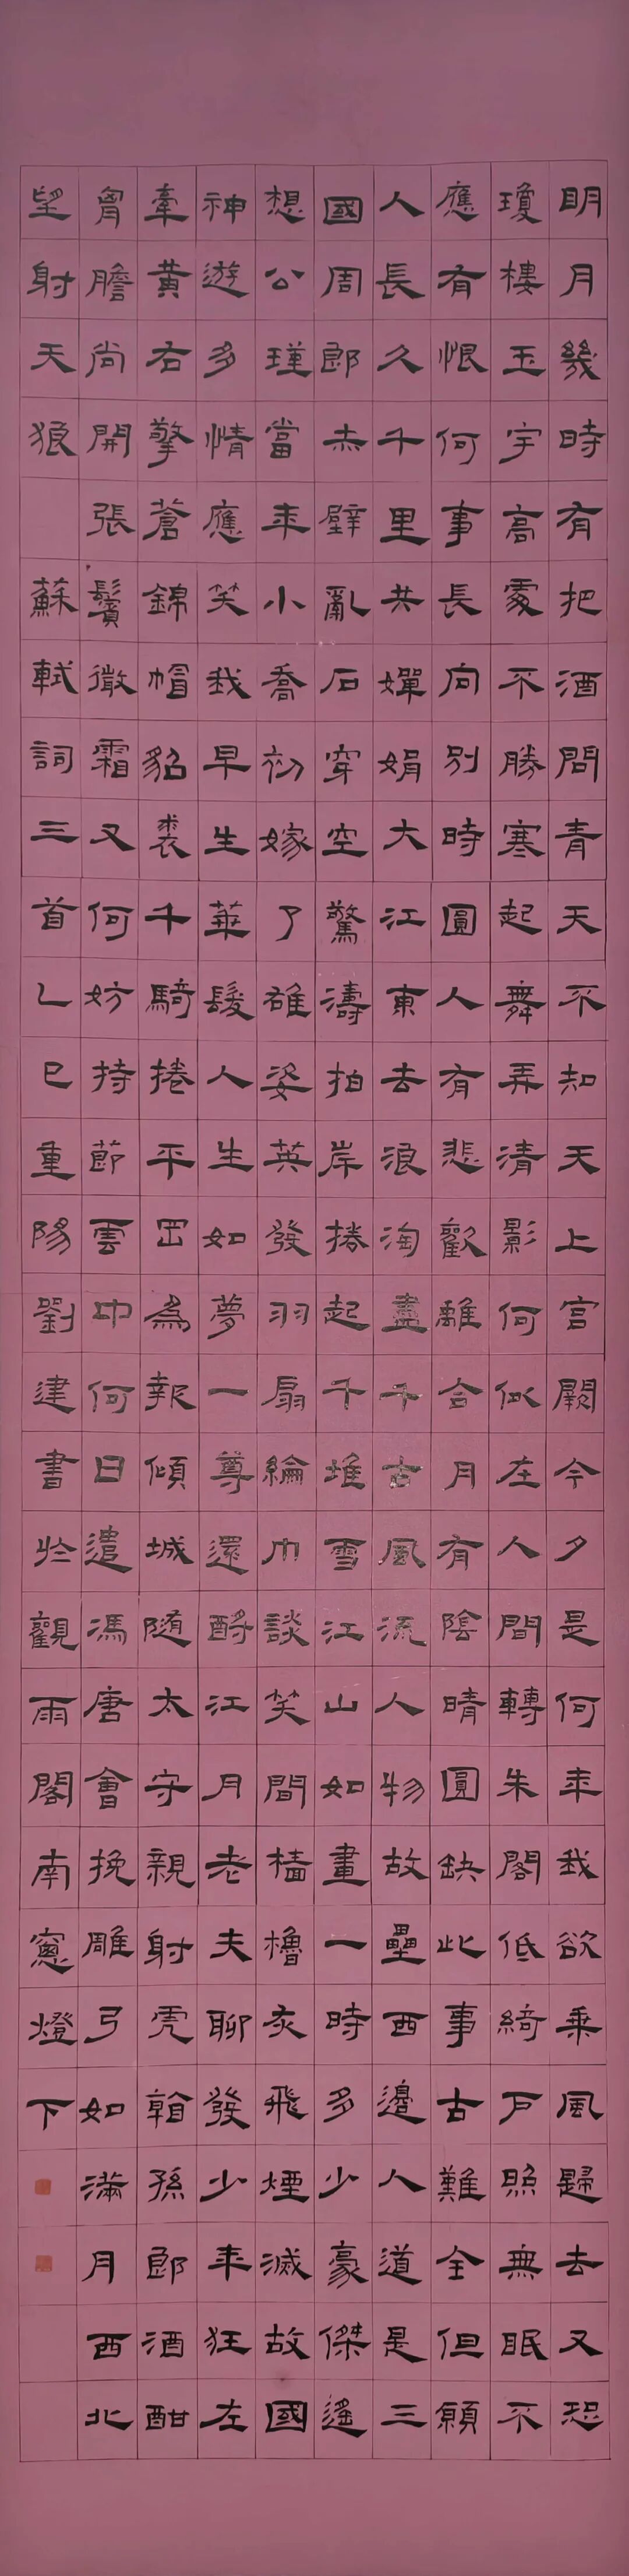 明月幾時有把酒問青天不知天上宫闕今夕是何年我欲乘風歸去又恐
瓊樓玉宇高處不勝寒起舞弄清影何似在人間轉朱閣低綺户照無眠不
應有恨何事長向別時圓人有悲歡離合月有陰晴圓缺此事古難全但願
人長久千里共嬋娟大江東去浪淘盡千古風流人物故壘西邊人道是三
國周郎赤壁亂石穿空驚濤拍岸捲起千堆雪江山如畫一時多少豪傑遙
想公瑾當年小喬初嫁了雄姿英發羽扇綸巾談笑間檣櫓灰飛煙滅故國
神遊多情應笑我早生華髮人生如夢一尊還酹江月老夫聊發少年狂左
牽黃右擎蒼錦帽貂裘千騎捲平岡為報傾城随太守親射虎看孫郎酒酣
胷膽尚開張鬢微霜又何妨持節雲中何日遣馮唐會挽雕弓如滿月西北
望射天狼 蘇軾詞三首乙巳重陽劉建書於觀雨閣南窻燈下